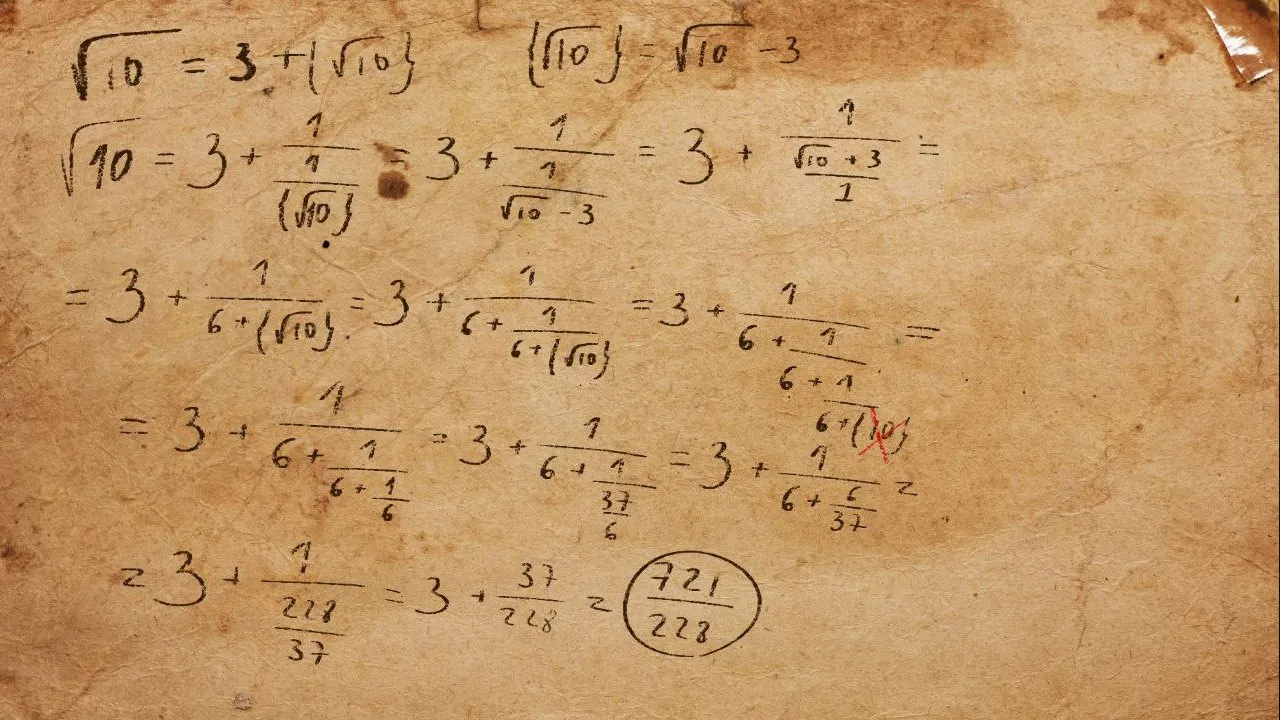 √10 = 3 + {√10} {√10} = √10 - 3
√10 = 3 + 1/(1/{√10}) = 3 + 1/(1/(√10 - 3)) = 3 + 1/((√10 + 3)/1) =
= 3 + 1/(6 + {√10}) = 3 + 1/(6 + 1/(6 + {√10})) = 3 + 1/(6 + 1/(6 + 1/(6 + {10}))) =
= 3 + 1/(6 + 1/(6 + 1/6)) = 3 + 1/(6 + 1/(37/6)) = 3 + 1/(6 + 6/37) =
= 3 + 1/(228/37) = 3 + 37/228 = 721/228